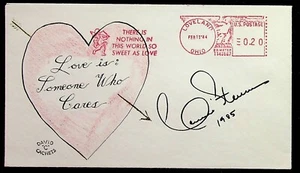 THERE IS
NOTHING IN
THIS WORLD SO
SWEET AS LOVE
LOVELAND
OHIO
FEB 13'84
U.S. POSTAGE
0.20
Love is:
Someone Who
Cares
1985
DAVID
"C"
CACHETS